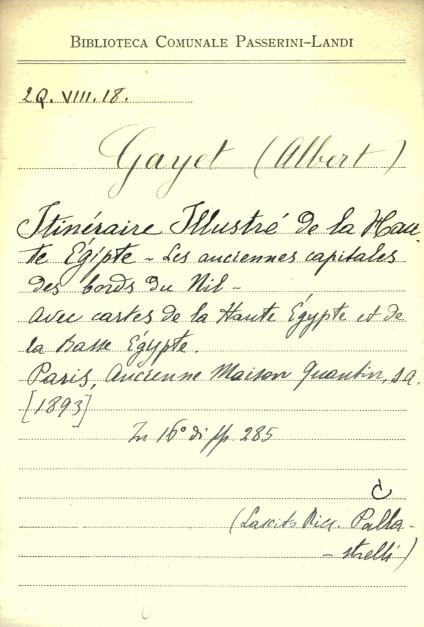 BIBLIOTECA COMUNALE PASSERINI-LANDI
2Q. VIII. 18.
Gayet (Albert)
Itinéraire Illustré de la Hau-
te Égipte - Les anciennes capitales
des bords du Nil -
Avec cartes de la Haute Égypte et de
la Basse Égypte.
Paris, Ancienne Maison Quantin, s.a.
[1893]
In 16° di pp. 285
C
(Lascito Ricc. Palla-
-strelli)